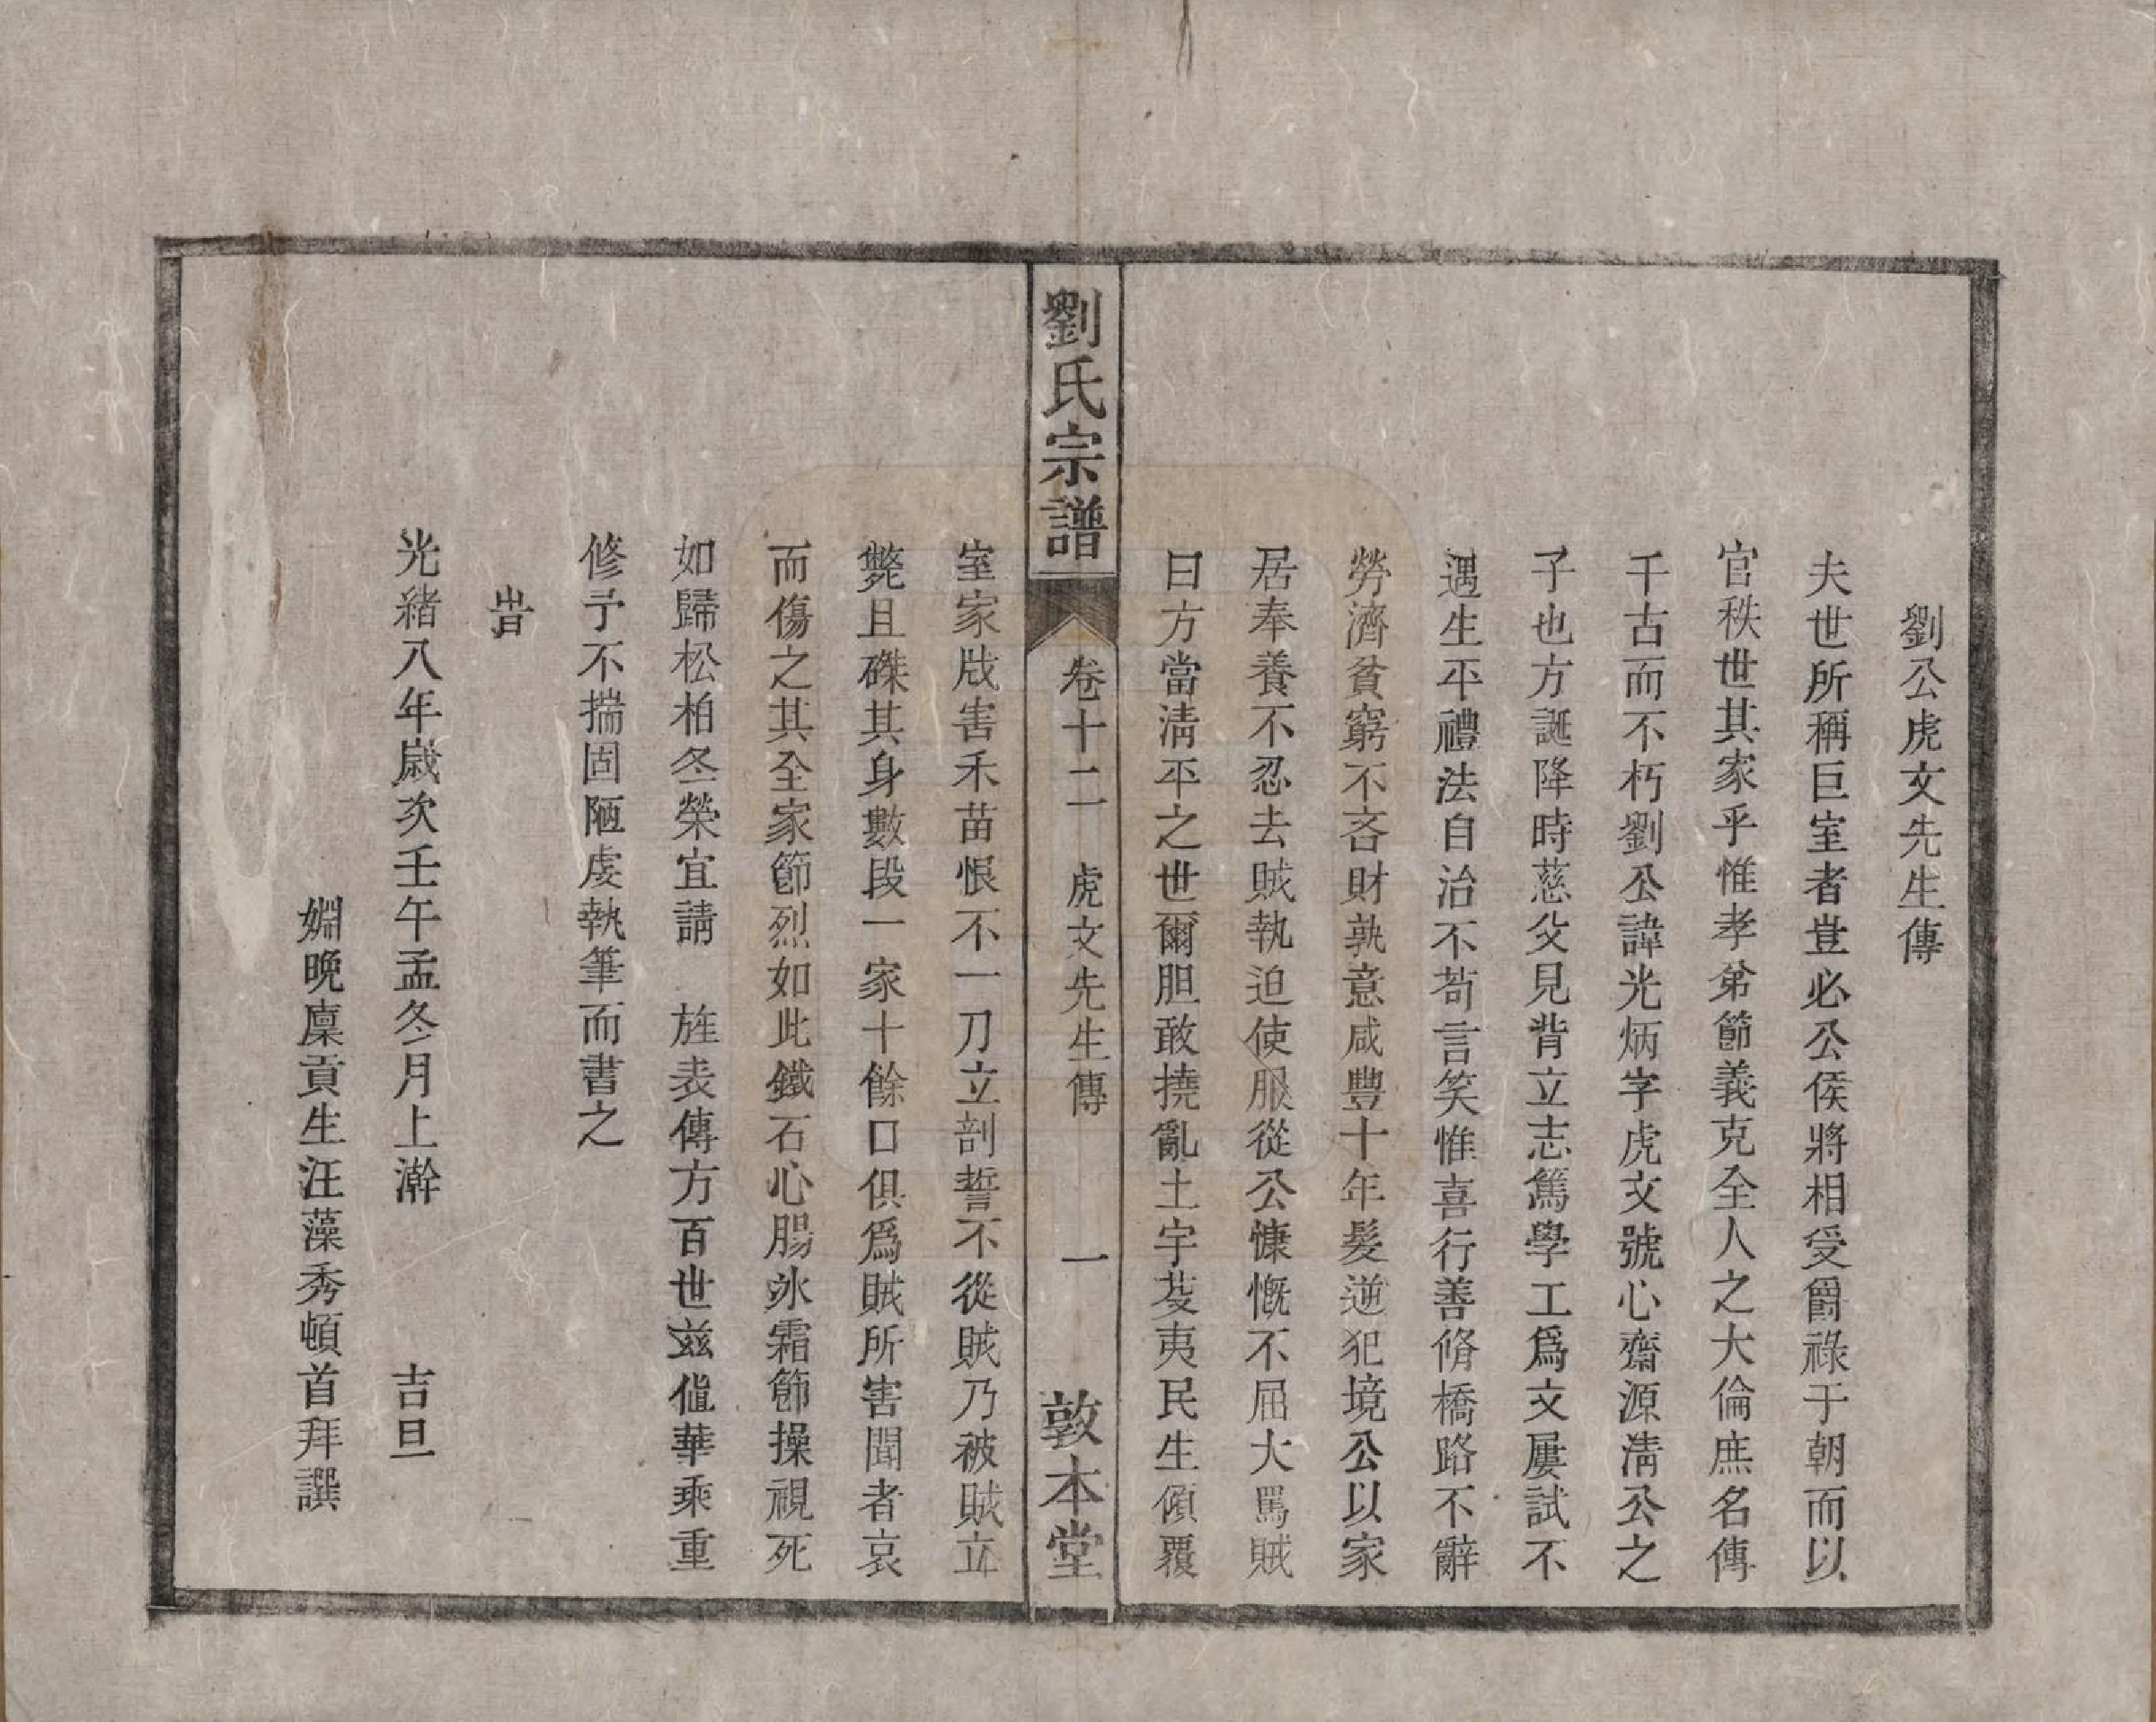 劉公虎文先生傳
夫世所稱巨室者豈必公侯將相受爵祿于朝而以
官秩世其家乎惟孝弟節義克全人之大倫庶名傳
千古而不朽劉公諱光炳字虎文號心齋源淸公之
子也方誕降時慈父見背立志篤學工爲文屢試不
遇生平禮法自治不苟言笑惟喜行善脩橋路不辭
勞濟貧窮不吝財孰意咸豐十年髮逆犯境公以家
居奉養不忍去賊執迫使服從公慷慨不屈大罵賊
曰方當淸平之世爾胆敢撓亂土宇芟夷民生傾覆
劉氏宗譜
卷十二 虎文先生傳 一
敦本堂
室家戕害禾苗恨不一刀立剖誓不從賊乃被賊立
斃且磔其身數段一家十餘口俱爲賊所害聞者哀
而傷之其全家節烈如此鐵石心腸氷霜節操視死
如歸松柏冬榮宜請 旌表傳方百世兹値華乘重
修予不揣固陋虔執筆而書之
旹
光緒八年歲次壬午孟冬月上澣 吉旦
姻晚廩貢生汪藻秀頓首拜譔